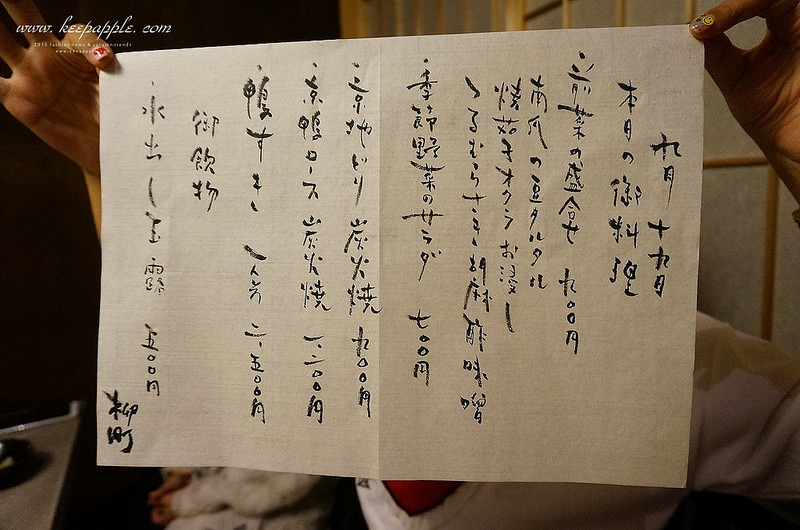 www.keepapple.com
九月 十九日
本日の御料理
・前菜の盛合せ 九〇〇円
南瓜の豆タルタル
焼茄子オクラお浸し
つるむらさき胡麻酢味噌
・季節野菜のサラダ 七〇〇円
・京地どり炭火焼 九〇〇円
・京鴨ロース炭火焼 一、二〇〇円
・鴨すき 一人前 二、五〇〇円
御飲物
・水出し玉露 五〇〇円
柳町